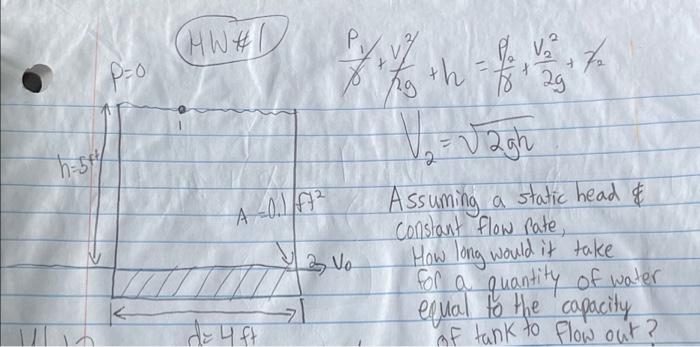 HW#1
P=0
P₁/γ + V₁²/2g + h = P₂/γ + V₂²/2g + z₂
1
V₂ = √2gh
h=5ft
A=0.1 ft²
Assuming a static head &
constant flow rate,
How long would it take
for a quantity of water
equal to the capacity
of tank to flow out?
2, V₀
d=4ft